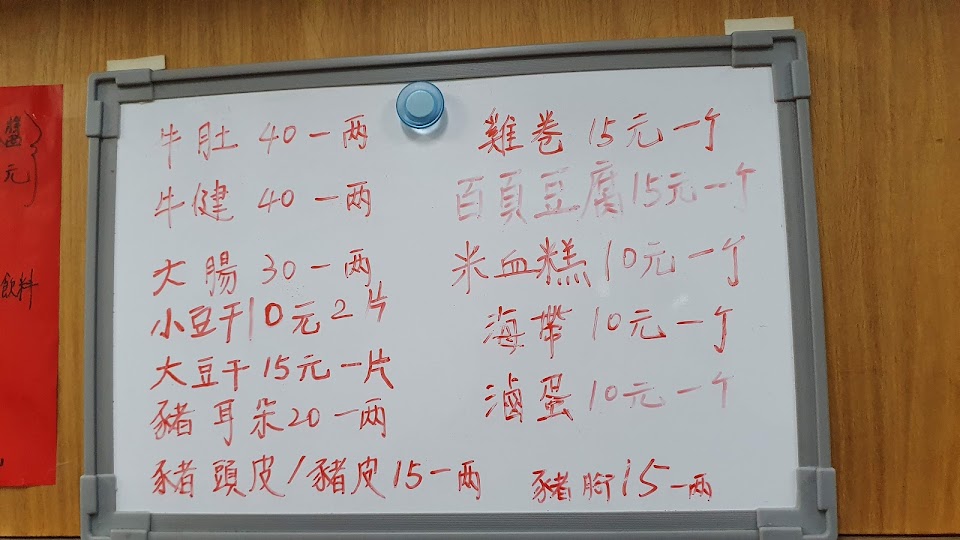 牛肚 40一两
牛健 40一两
大腸 30一两
小豆干10元2片
大豆干15元一片
豬耳朵20一两
豬頭皮/豬皮15一两
雞卷 15元一个
百頁豆腐15元一个
米血糕10元一个
海帶10元一个
滷蛋10元一个
豬腳15一两
元
飲料